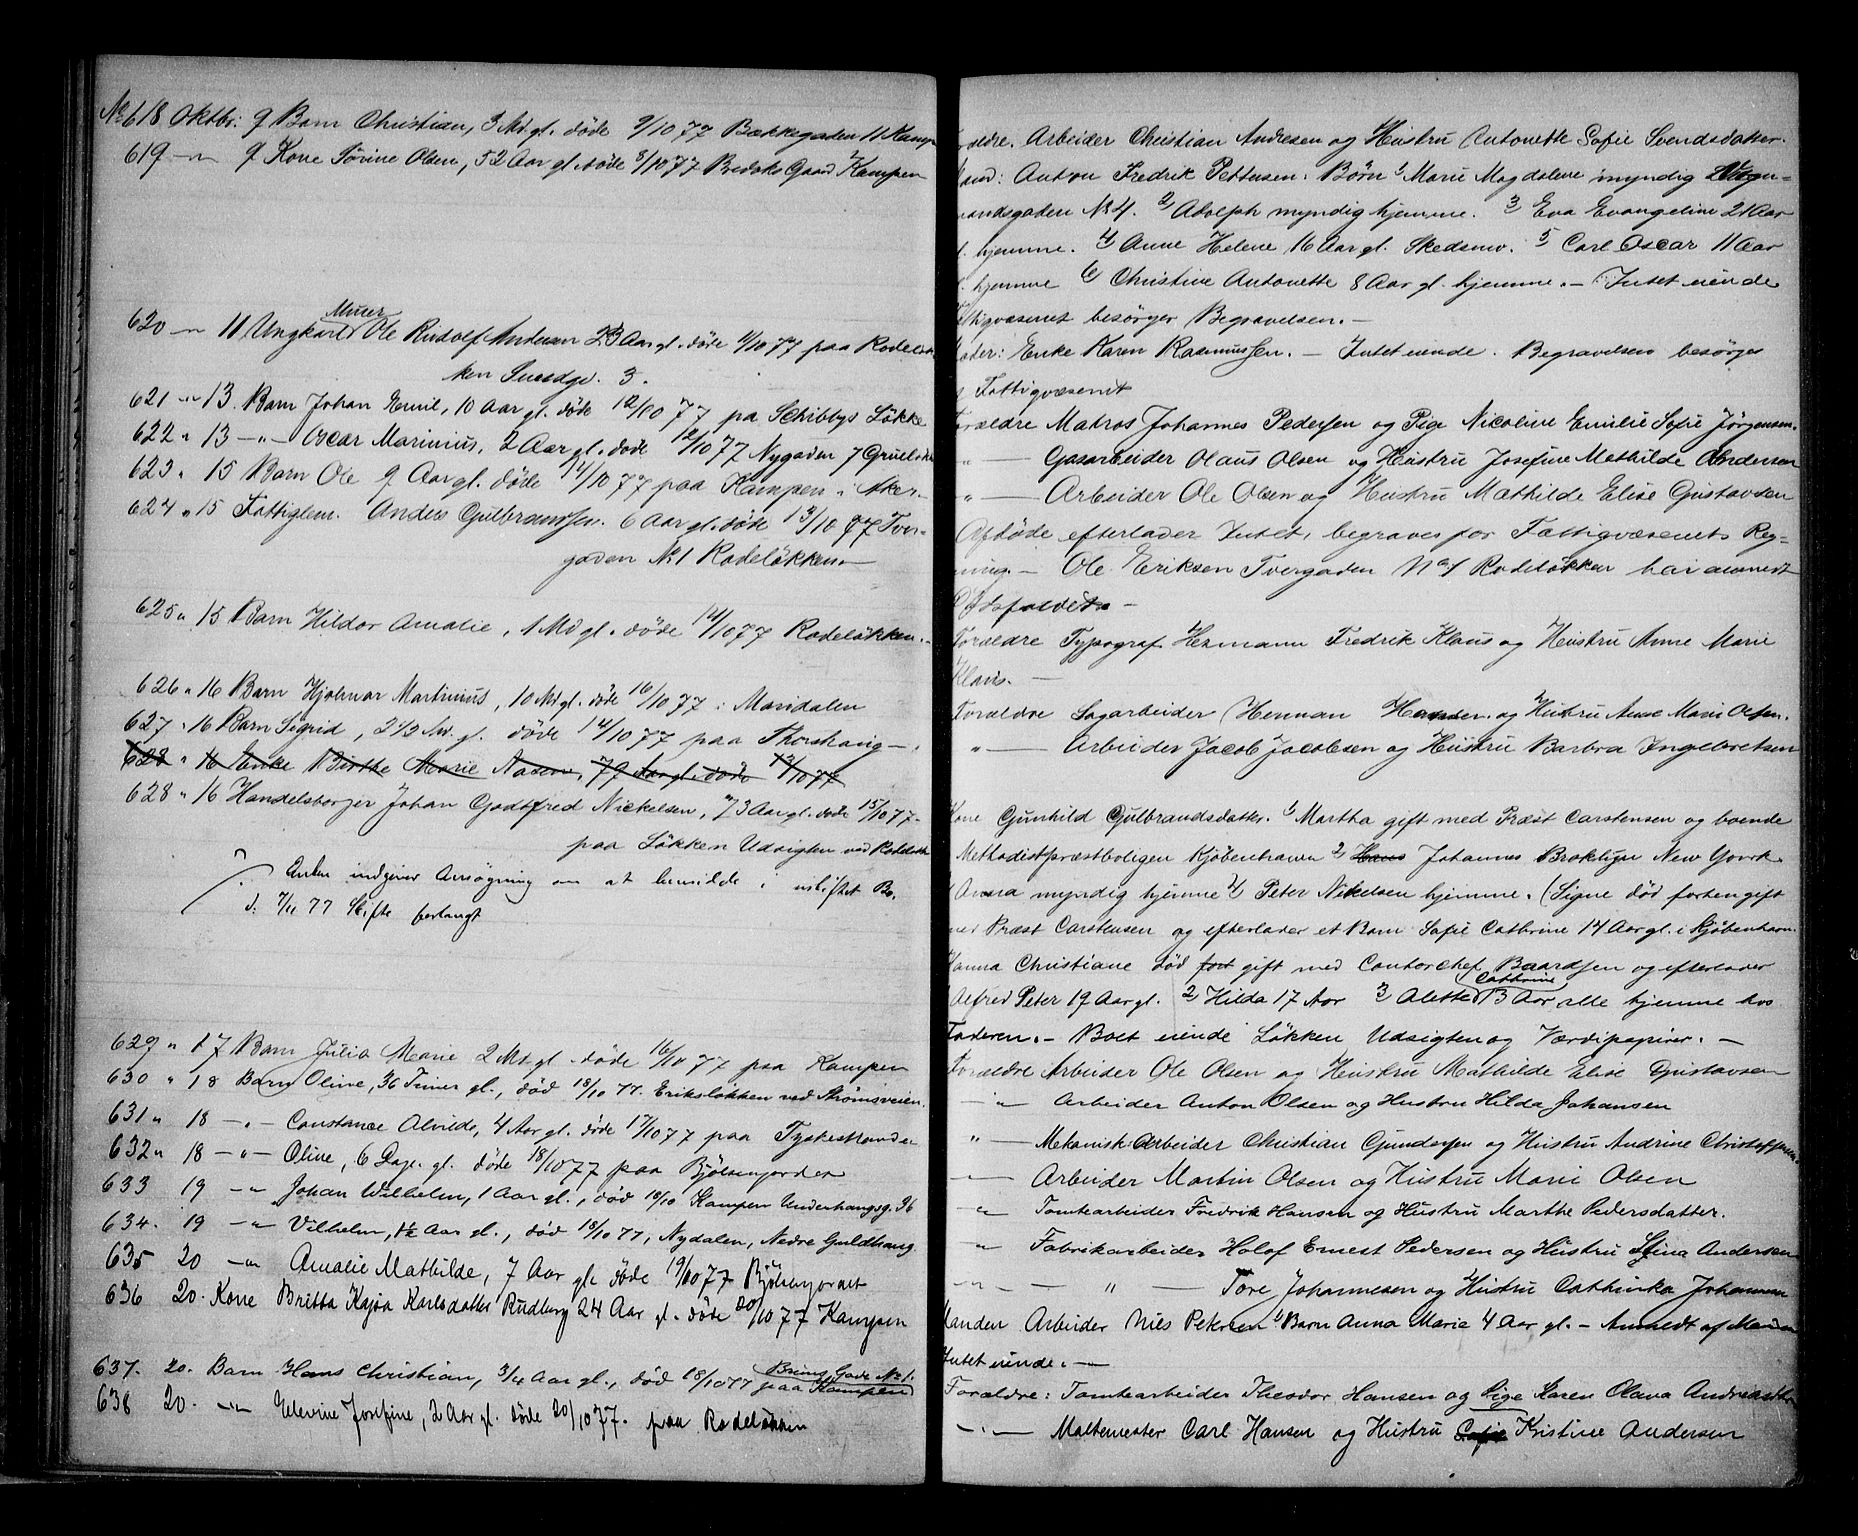 No 618 Oktbr. 9 Barn Christian, 3 Md gl. døde 9/10 77 Bækkegaden 11 Kamp
619 -"- 9 Kone Torine Olsen, 52 Aar gl. døde 8/10 77 Gaard Kampen
Murer
620 -"- 11 Ungkarl Ole Rudolf Andersen 23 Aar gl. døde 11/10 77 paa Rodeløk
ken 3.
621 -"- 13. Barn Johan Emil, 10 Aar gl. døde 12/10 77 pa Schibbys Løkke
622 " 13 -"- Oscar Marinius, 2 Aar gl. døde 12/10 77 Nygaden 7 Grueløk
623 " 15 Barn Ole 9 Aar gl. døde 14/10 77 paa Kampen i Aker.
624 " 15 Fattiglem. Anders Gulbranssen. 6 Aar gl. døde 13/10 77 Tver-
gaden No 1 Rodeløkken.
625 " 15 Barn Hildor Amalie, 1 Md gl. døde 14/10 77 Rodeløkken.
626 " 16 Barn Hjalmar Martinius, 10 Md gl. døde 16/10 77 i Maridalen
627 " 16 Barn Sigrid, 2 1/2 Md. gl. døde 14/10 77 paa Thorshaug
628 " 16 Enke Birthe Marie 79 Aar gl. døde 13/10 77
628 " 16 Handelsborger Johan Godtfred Nickelsen, 73 Aar gl. døde 15/10 77.
paa Løkken Udsigten ved Rodeløk
Enken indgiver Ansøgning om at hensidde i uskiftet Bo.
d. 7/11 77 Skifte forlangt
629 " 17 Barn Julia Marie 2 Md gl. døde 16/10 77 paa Kampen
630 " 18 Barn Oline, 36 Timer gl., død 18/10 77. Eriksløkken ved Strømsveien.
631 " 18 -"- Constance Alvilde, 4 Aar gl. døde 17/10 77 paa Tyskestranden
632 " 18 -"- Oline, 6 Dage gl. døde 18/10 77 paa Bjølsenjordet
633 19 -"- Johan Wilhelm, 1 Aar gl., død 18/10 Kampen Underhaugsg. 36
634. 19 -"- Vilhelm, 1 1/2 Aar gl., død 18/10 77, Nydalen, Nedre Guldhaug
635 20 -"- Amalie Mathilde, 7 Aar gl. døde 19/10 77 Bjølsenjordet
636 20. Kone Britta Kajsa Karlsdatter Rudberg 24 Aar gl. døde 20/10 77 Kampen
Gade No 1.
637. 20. Barn Hans Christian, 3/4 Aar gl., død 18/10 77 paa Kampen
638 20. -"- Elevine Josefine, 2 Aar gl. døde 20/10 77. paa Rodeløkken
rældre. Arbeider Christian Andresen og Hustru Antonette Sofie Svendsdatter.
and: Anton Fredrik Pettersen. Børn 1) Marie Magdalene myndig
mandsgaden No 4. 2) Adolph myndig hjemme. 3) Eva Evangeline 21 Aar
l. hjemme. 4) Anne Helene 16 Aar gl. Skedsmo. 5) Carl Oscar 11 Aar
l. hjemme 6) Christine Antonette 8 Aar gl. hjemme. - Intet eiende
tigvæsenet besørger Begravelsen. -
oder: Enke Karen Rasmussen. - Intet eiende. Begravelsen besørges
Fattigvæsenet
orældre Matros Johannes Pedersen og Pige Nicoline Emilie Sofie Jørgensen.
" - Gasarbeider Olaus Olsen og Hustru Josefine Mathilde Andersen
" - Arbeider Ole Olsen og Hustru Mathilde Elise Gustavsen
Afdøde efterlader Intet, begraves for Fattigvæsenets Reg-
ning. - Ole Eriksen Tvergaden No 1 Rodeløkken har anmeldt
Dødsfaldet. -
Forældre Typograf Hermann Fredrik Klaus og Hustru Anne Marie
Klaus. -
Forældre Sagarbeider Herman Hansen og Hustru Anne Marie Olsen.
" - Arbeider Jacob Jacobsen og Hustru Barbra Ingebretsen
Kone Gunhild Gulbrandsdatter. 1) Martha gift med Præst Carstensen og boende
Methodistpræstboligen Kjøbenhavn 2) Hans Johannes Broklyn New Yorrk
Anna myndig hjemme 4) Peter Nikelsen hjemme. (Signe død forhen gift
med Præst Carstensen og efterlader et Barn Sofie Cathrine 14 Aar gl. i Kjøbenhavn.
Hanna Christiane død fort gift med Contorchef Baardsen og efterlader
Cathrine
Alfred Peter 19 Aar gl. 2) Hilda 17 Aar 3) Alette 13 Aar alle hjemme hos
Faderen. - Boet eiende Løkken Udsigten og Værdipapirer. -
Forældre Arbeider Ole Olsen og Hustru Mathilde Elise Gustavsen
-"- Arbeider Anton Olsen og Hustru Hilda Johansen
" - Mekanisk Arbeider Christian Gundersen og Hustru Andrine Christoffersen
-"- Arbeider Martin Olsen og Hustru Marie Olsen
" Tomtearbeider Fredrik Hansen og Hustru Marthe Pedersdatter.
" Fabrikarbeider Holof Ernest Pedersen og Hustru Stina Andersen
-"- - " - Tore Johannesen og Hustru Cathinka Johannesen
Manden Arbeider Nils Petersen 1) Barn Anna Maria 4 Aar gl. - Anmeldt af Manden
Intet eiende. -
Forældre: Tomtearbeider Theodor Hansen og Pige Karen Olava Andreasdtr
-"- Maltemester Carl Hansen og Hustru Sofie Kristine Andersen